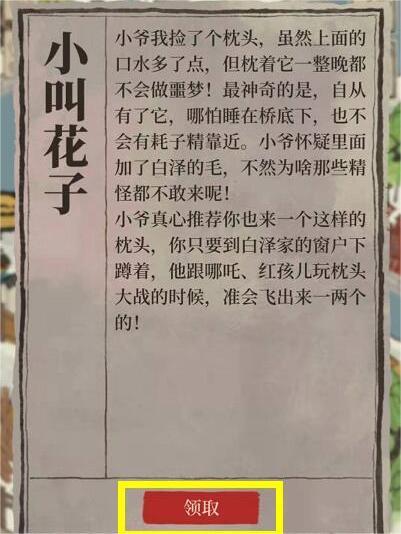 小叫花子
小爷我捡了个枕头，虽然上面的
口水多了点，但枕着它一整晚都
不会做噩梦！最神奇的是，自从
有了它，哪怕睡在桥底下，也不
会有耗子精靠近。小爷怀疑里面
加了白泽的毛，不然为啥那些精
怪都不敢来呢！
小爷真心推荐你也来一个这样的
枕头，你只要到白泽家的窗户下
蹲着，他跟哪吒、红孩儿玩枕头
大战的时候，准会飞出来一两个
的！
领取